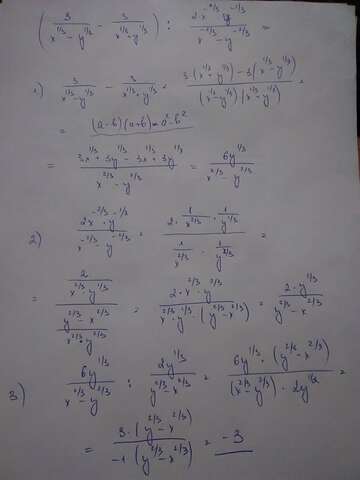 ( 3 / (x^1/3 - y^1/3) - 3 / (x^1/3 - y^1/3) ) : (2x^-2/3 y^-1/3) / (x^-2/3 - y^-2/3) =
1) 3 / (x^1/3 - y^1/3) - 3 / (x^1/3 + y^1/3) = (3·(x^1/3 + y^1/3) - 3(x^1/3 - y^1/3)) / ((x^1/3 - y^1/3)(x^1/3 + y^1/3)) =
= (a-b)(a+b) = a² - b²
= (3x^1/3 + 3y^1/3 - 3x^1/3 + 3y^1/3) / (x^2/3 - y^2/3) = 6y^1/3 / (x^2/3 - y^2/3)
2) (2x^-2/3 · y^-1/3) / (x^-2/3 - y^-2/3) = (2 · 1/x^2/3 · 1/y^1/3) / (1/x^2/3 - 1/y^2/3) =
= (2 / (x^2/3 · y^1/3)) / ((y^2/3 - x^2/3) / (x^2/3 · y^2/3)) = (2 · x^2/3 · y^2/3) / (x^2/3 · y^1/3 · (y^2/3 - x^2/3)) = (2 · y^1/3) / (y^2/3 - x^2/3)
3) 6y^1/3 / (x^2/3 - y^2/3) : 2y^1/3 / (y^2/3 - x^2/3) = (6y^1/3 · (y^2/3 - x^2/3)) / ((x^2/3 - y^2/3) · 2y^1/3) =
= (3 · (y^2/3 - x^2/3)) / (-1 (y^2/3 - x^2/3)) = -3